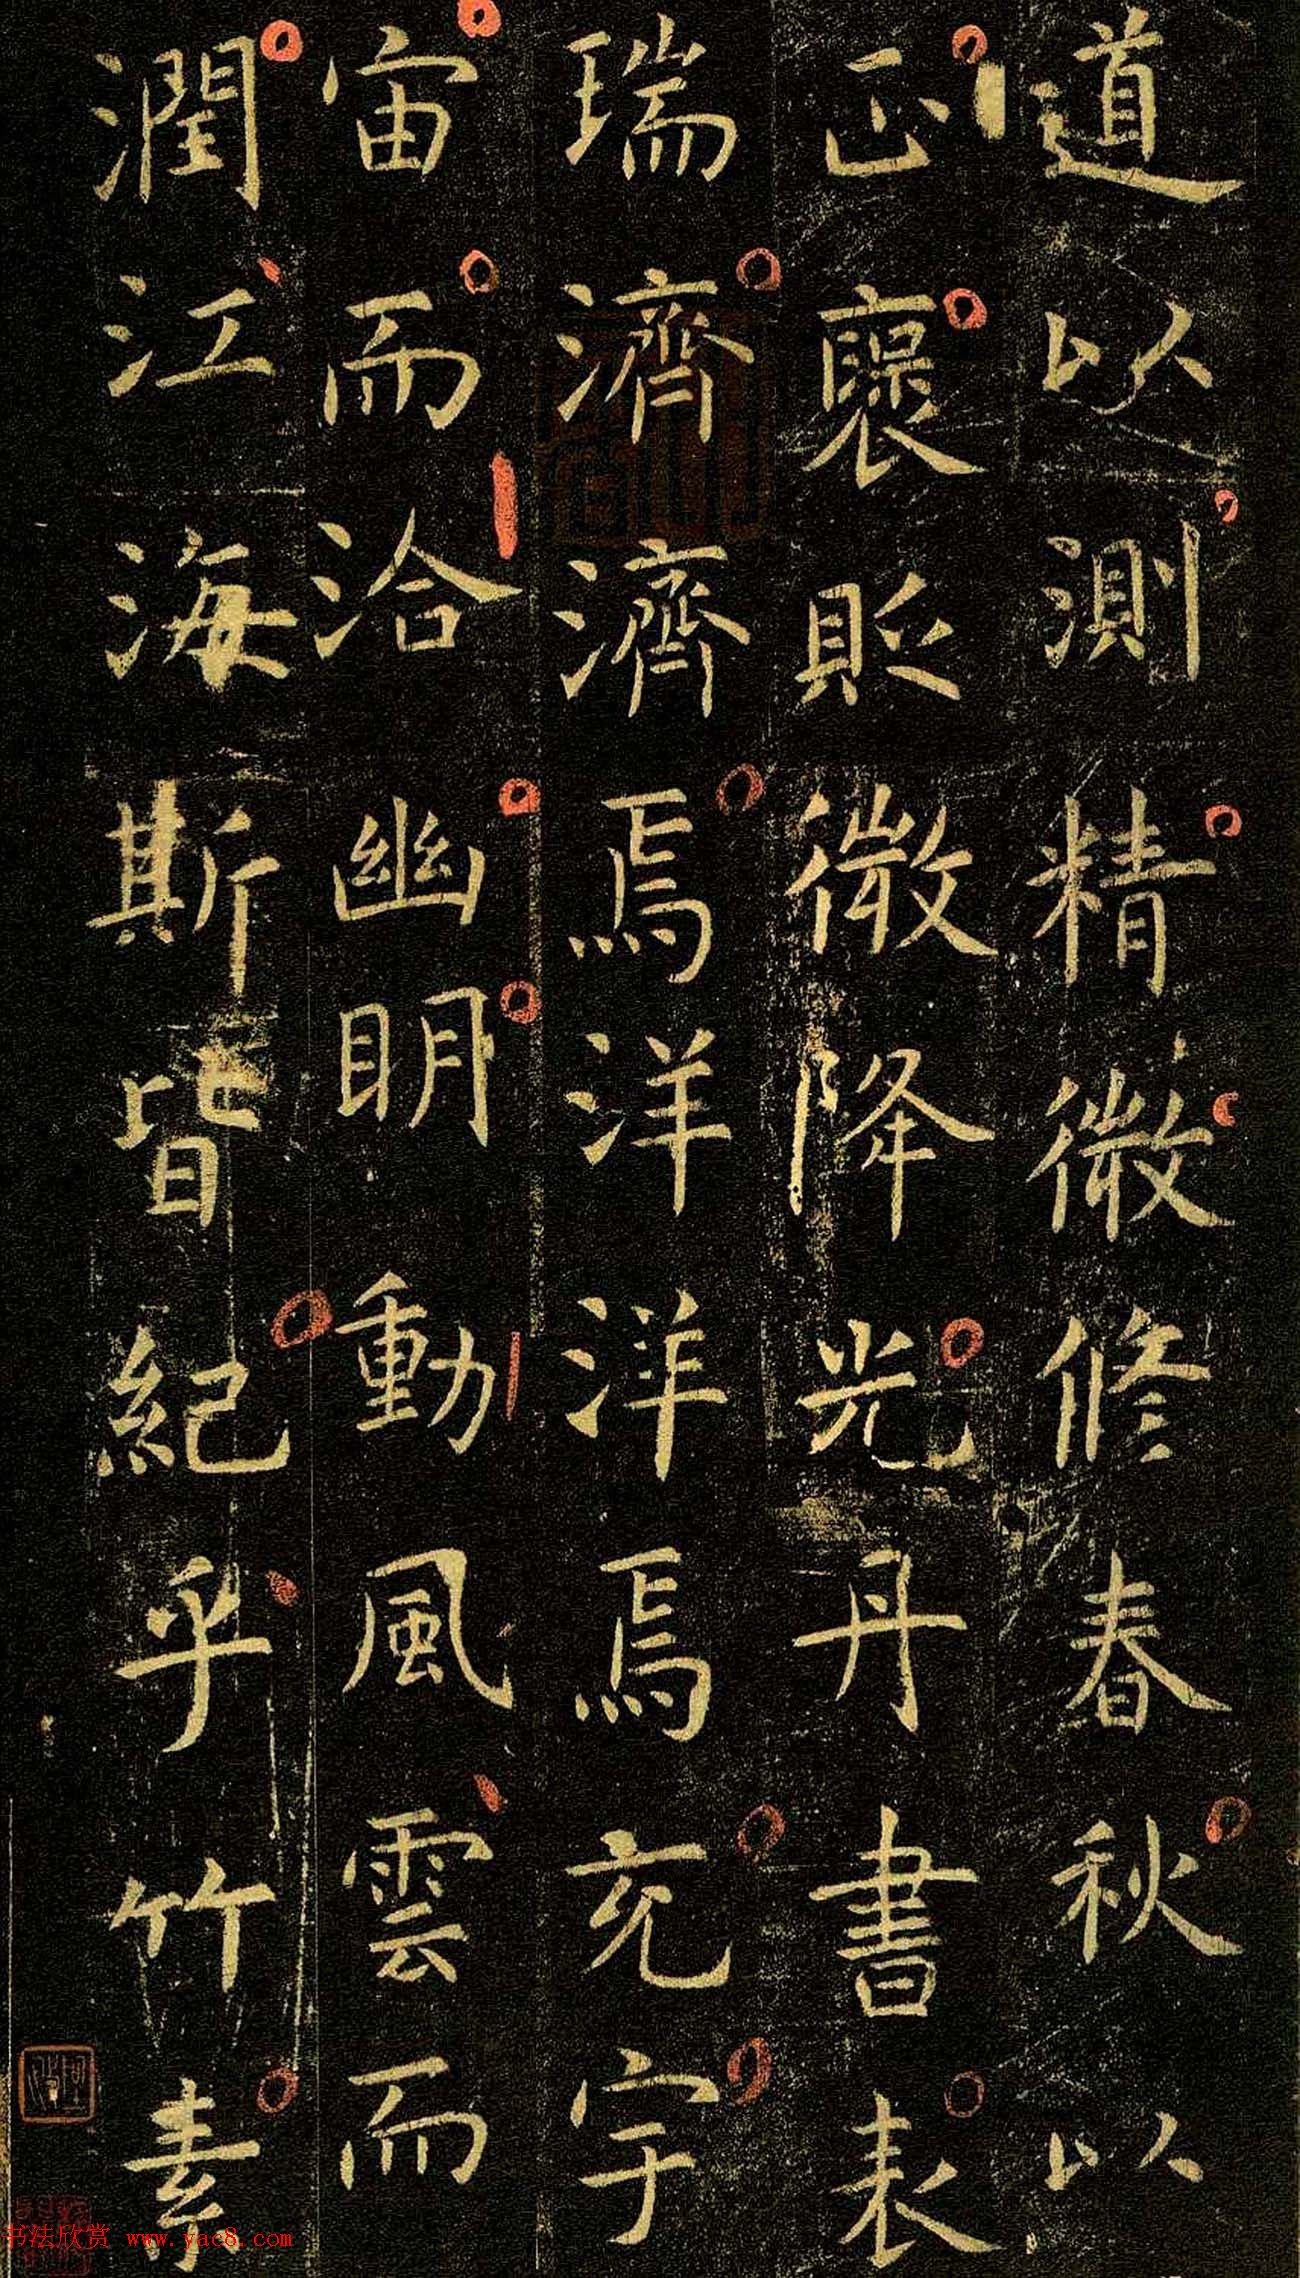 道以測精微修春秋以
正褒貶微降光丹書表
瑞濟濟焉洋洋焉充宇
宙而洽幽明動風雲而
潤江海斯皆紀乎竹素
书法欣赏 www.yac8.com